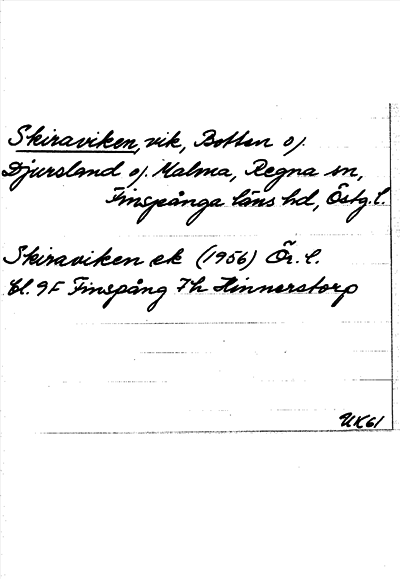 Skiraviken, vik, Botten o/.
Djursland o/. Malma, Regna sn,
Finspånga läns hd, Östg.l.
Skiraviken ek (1956) Ör. l.
bl. 9F Finspång 7h Hinnerstorp
UK61